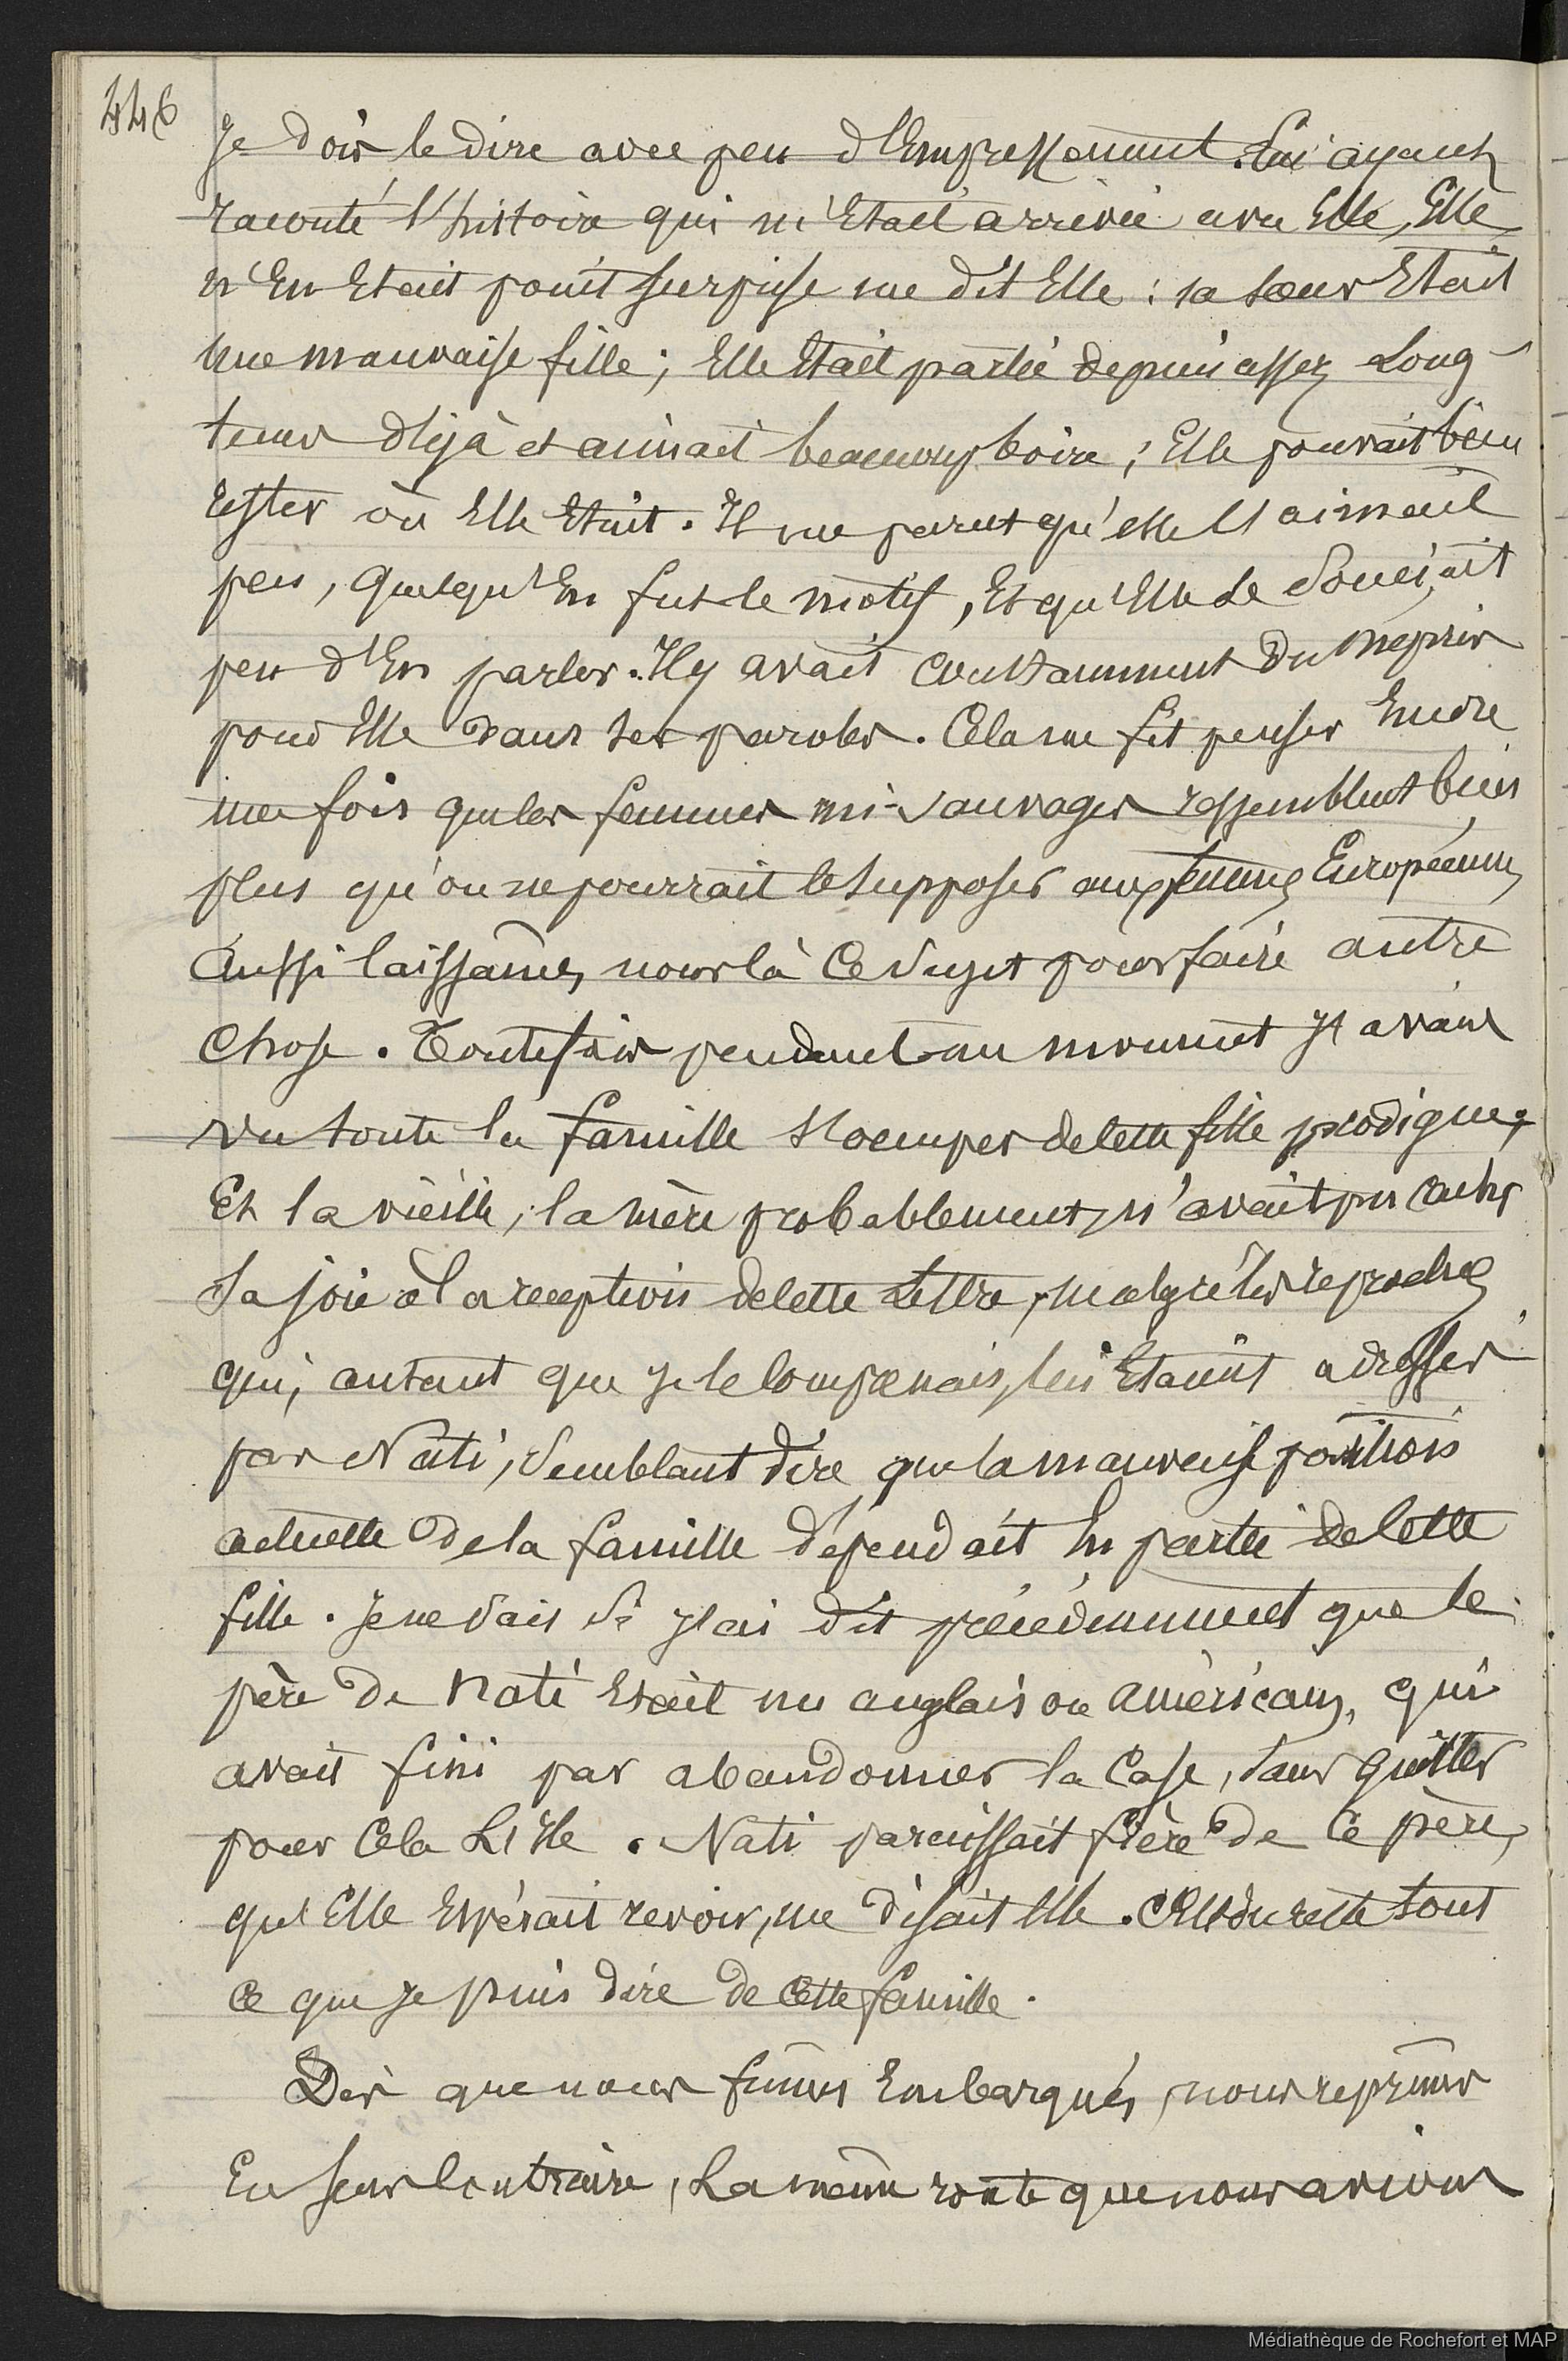 446
Je dois le dire avec peu d'Empressement. Lui ayant
raconté l'histoire qui m'Etait arrivée avec Elle, Elle
n'En Etait point surprise me dit Elle : sa sœur Etait
une mauvaise fille ; Elle Etait partie depuis assez Long-
tems déjà et aimait beaucoup boire ; Elle pouvait bien
rester où Elle Etait. Il me parut qu'elle l'aimait
peu, quelqu'En fut le motif, Et qu'Elle se Souciait
peu d'En parler. Il y avait constamment Du mepris
pour Elle dans ses paroles. Cela me fit penser Encore
une fois que les femmes mi-Sauvages ressemblent bien
plus qu'on ne pourrait le supposer aux femmes Européennes,
Aussi laissâmes nous là Ce Sujet pour faire autre
Chose. Toutefois pendant un moment J'avais
vu toute la famille s'occuper de cette fille prodigue,
Et la vieille, la mère probablement, n'avait pu cacher
Sa joie à la reception de cette Lettre, malgré les reproches
qui, autant que je le comprenais, lui Etaient adressés
par Nati, Semblant dire que la mauvaise position
actuelle de la famille dépendait En partie de cette
fille. Je ne Sais Si J'ai dit précédemment que le
père de Nati Etait un anglais ou américain, qui
avait fini par abandonner la Case, Sans quitter
pour Cela L'Ile. Nati paraissait fière de Ce père,
qu'Elle Espérait revoir, me disait Elle. C'Est du reste tout
ce que je puis dire de Cette famille.
Dès que nous fûmes Embarqués, nous reprimes
En sens Contraire, La même route que nous avions
Médiathèque de Rochefort et MAP